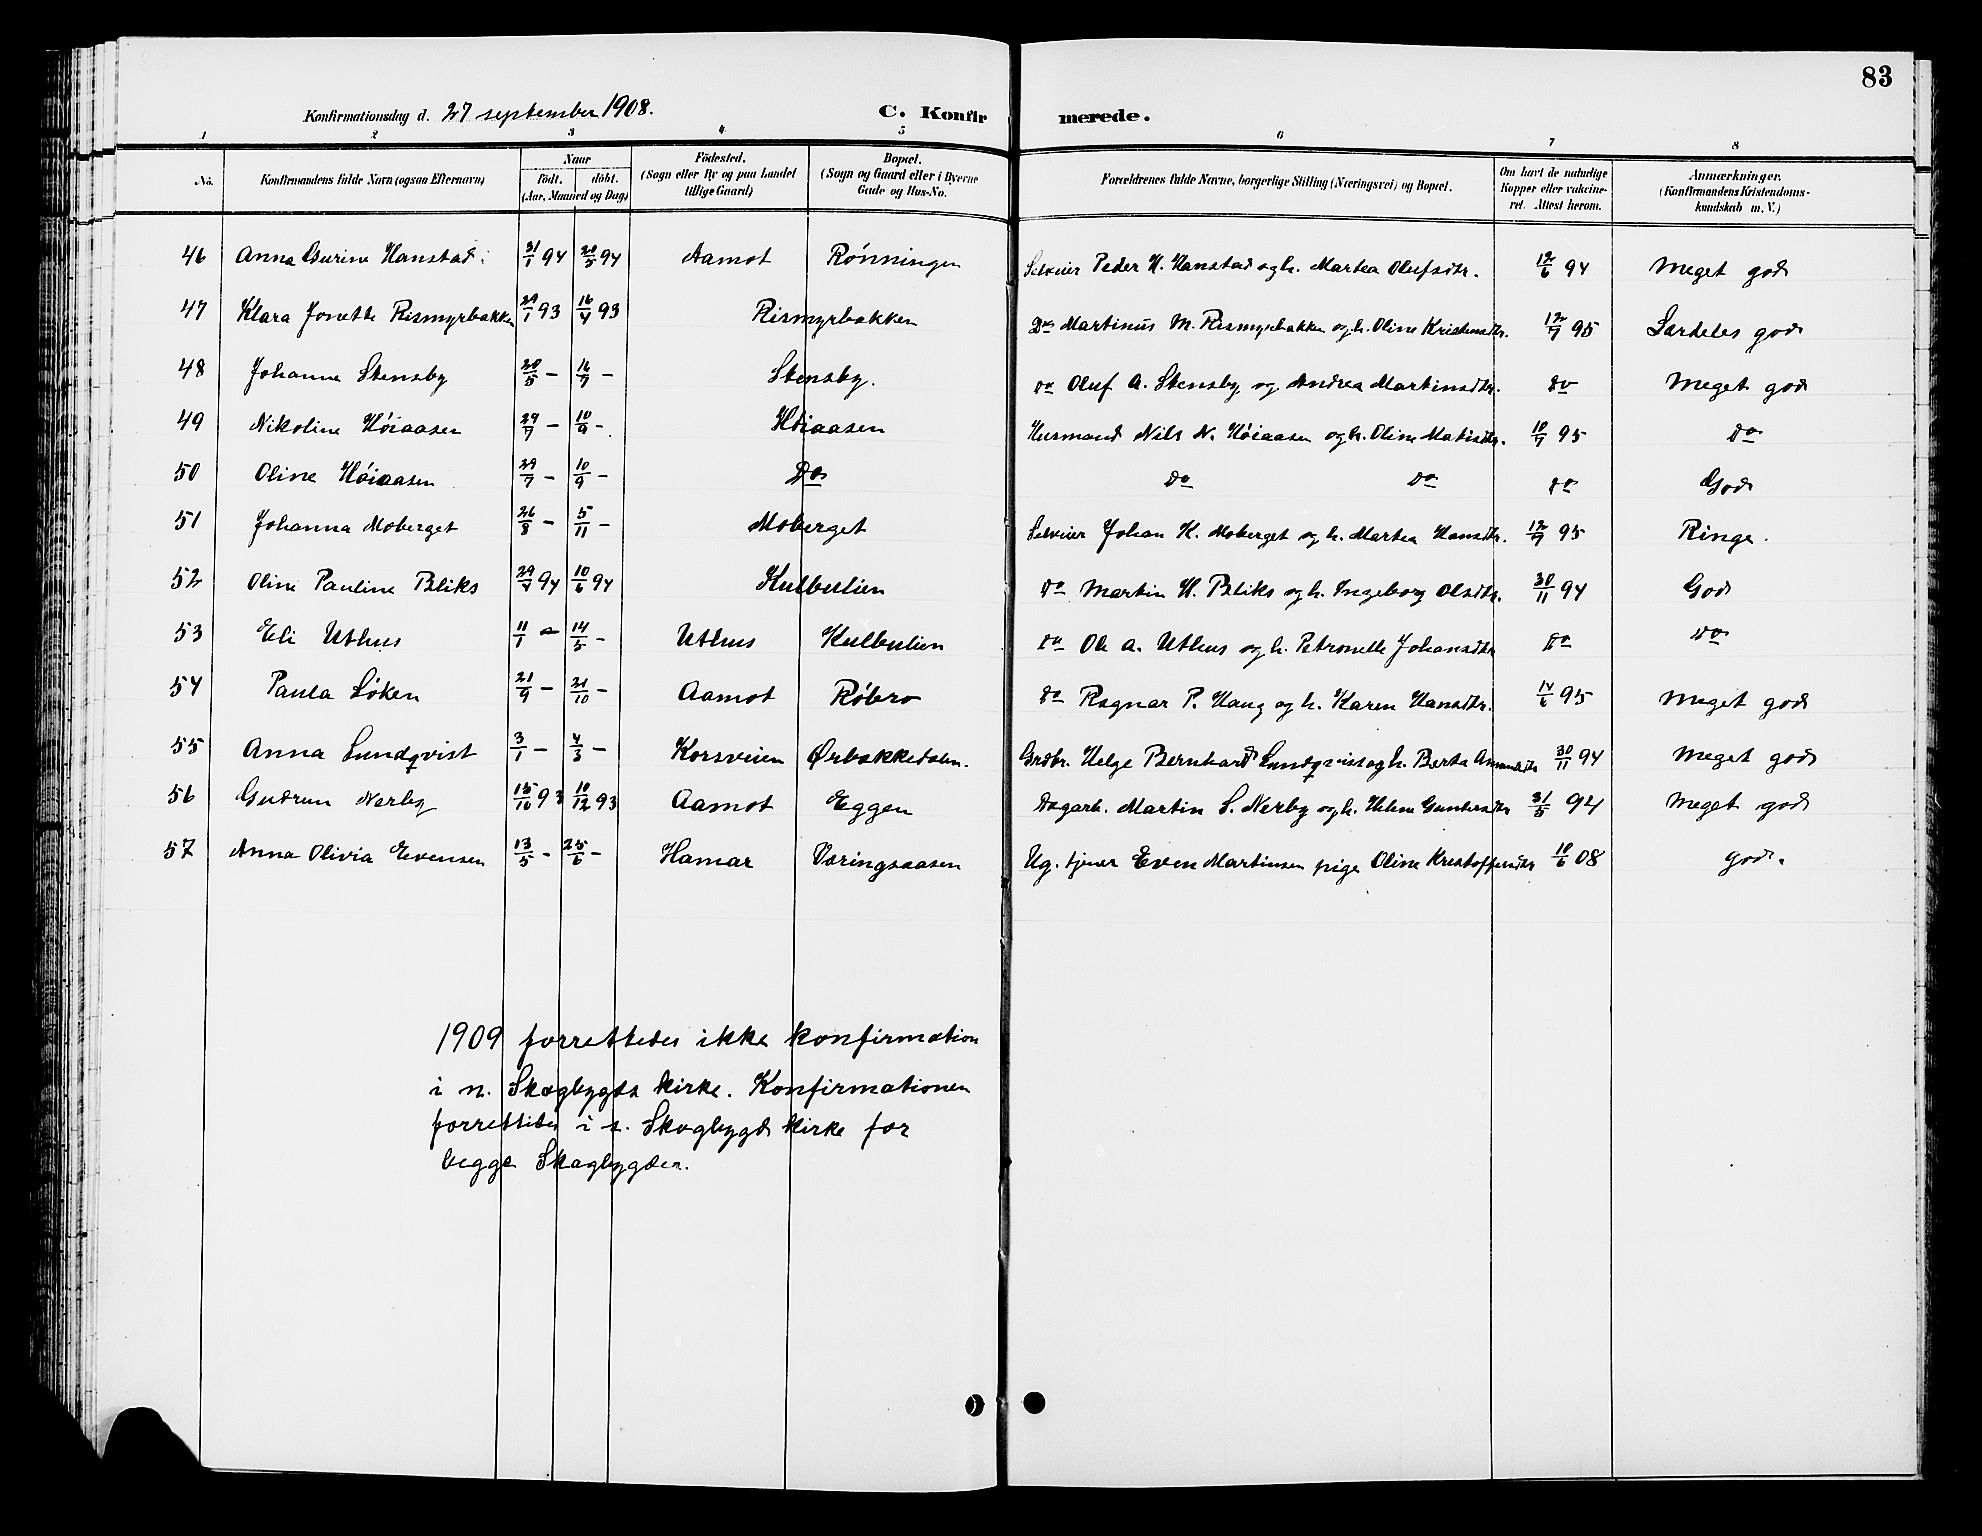 83
Konfirmationsdag d. 27 september 1908. C. Konfirmerede.
1 2 3 4 5 6 7 8
No. Konfirmandens fulde Navn (ogsaa Efternavn) Naar Födt. döbt. (Aar, Maaned og Dag) Födested. (Sogn eller By og paa Landet tillige Gaard) Bopæl. (Sogn og Gaard eller i Byerne Gade og Hus-No. Forældrenes fulde Navne, borgerlige Stilling (Næringsvei) og Bopæl. Om havt de naturlige Kopper eller vakcineret. Attest herom. Anmærkninger. (Konfirmandens Kristendomskundskab m. V.)
46 Anna Gurine Hanstad. 31/1 94 20/5 94 Aamot Rönningen Selveier Peder H. Hanstad og h. Martea Olufsdtr. 12/6 94 Meget god
47 Klara Jonette Rismyrbakken 29/1 93 16/4 93 Rismyrbakken Do Martinus M. Rismyrbakken og h. Oline Kristensdtr. 12/7 95 Særdeles god
48 Johanne Stensby 20/5 - 16/7 - Stensby. do Oluf A. Stensby og Andrea Martinsdtr. do Meget god
49 Nikoline Höiaasen 29/7 - 10/9 - Höiaasen Husmand Nils N. Höiaasen og h. Oline Matisdtr. 10/7 95 do
50 Oline Höiaasen 29/7 - 10/9 - Do do do do God
51 Johanna Moberget 26/8 - 5/11 - Moberget Selveier Johan K. Moberget og h. Martea Hansdtr. 12/7 95 Ringe.
52 Oline Pauline Bliks 29/4 94 10/6 94 Kulbulien do Martin H. Bliks og h. Ingeborg Olsdtr. 30/11 94 God
53 Eli Uthus 11/1 - 14/5 - Uthus Kulbulien do Ole A. Uthus og h. Petronelle Johansdtr do do
54 Paula Löken 21/9 - 21/10 - Aamot Röbro do Ragnar P. Haug og h. Karen Hansdtr. 14/6 95 Meget god
55 Anna Lundqvist 3/1 - 4/3 - Korsveien Ørbakkedalen. Grdbr. Helge Bernhard Lundqvist og h. Berta Amundsdtr 30/11 94 Meget god
56 Gudrun Nerby 15/10 93 10/12 93 Aamot Eggen Dagarb. Martin S. Nerby og h. Helene Gundersdtr 31/5 94 Meget god
57 Anna Olivia Evensen 13/5 - 25/6 - Hamar Væringsaasen Ug. tjener Even Martinsen pige Oline Kristoffersdtr 10/6 08 god.
1909 forrettedes ikke konfirmation
i n. Skogbygds kirke. Konfirmationen
forrettedes i s. Skogbygds kirke for
begge Skogbygder.